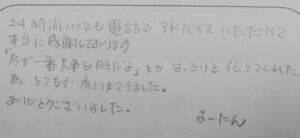 24時間いつでも電話でアドバイスいただけて
本当に感謝しております
「今が一番大事な時だよ」とかはっきりと伝えてくれた
為、とても
ました。
ありがとうございました。
よーたん